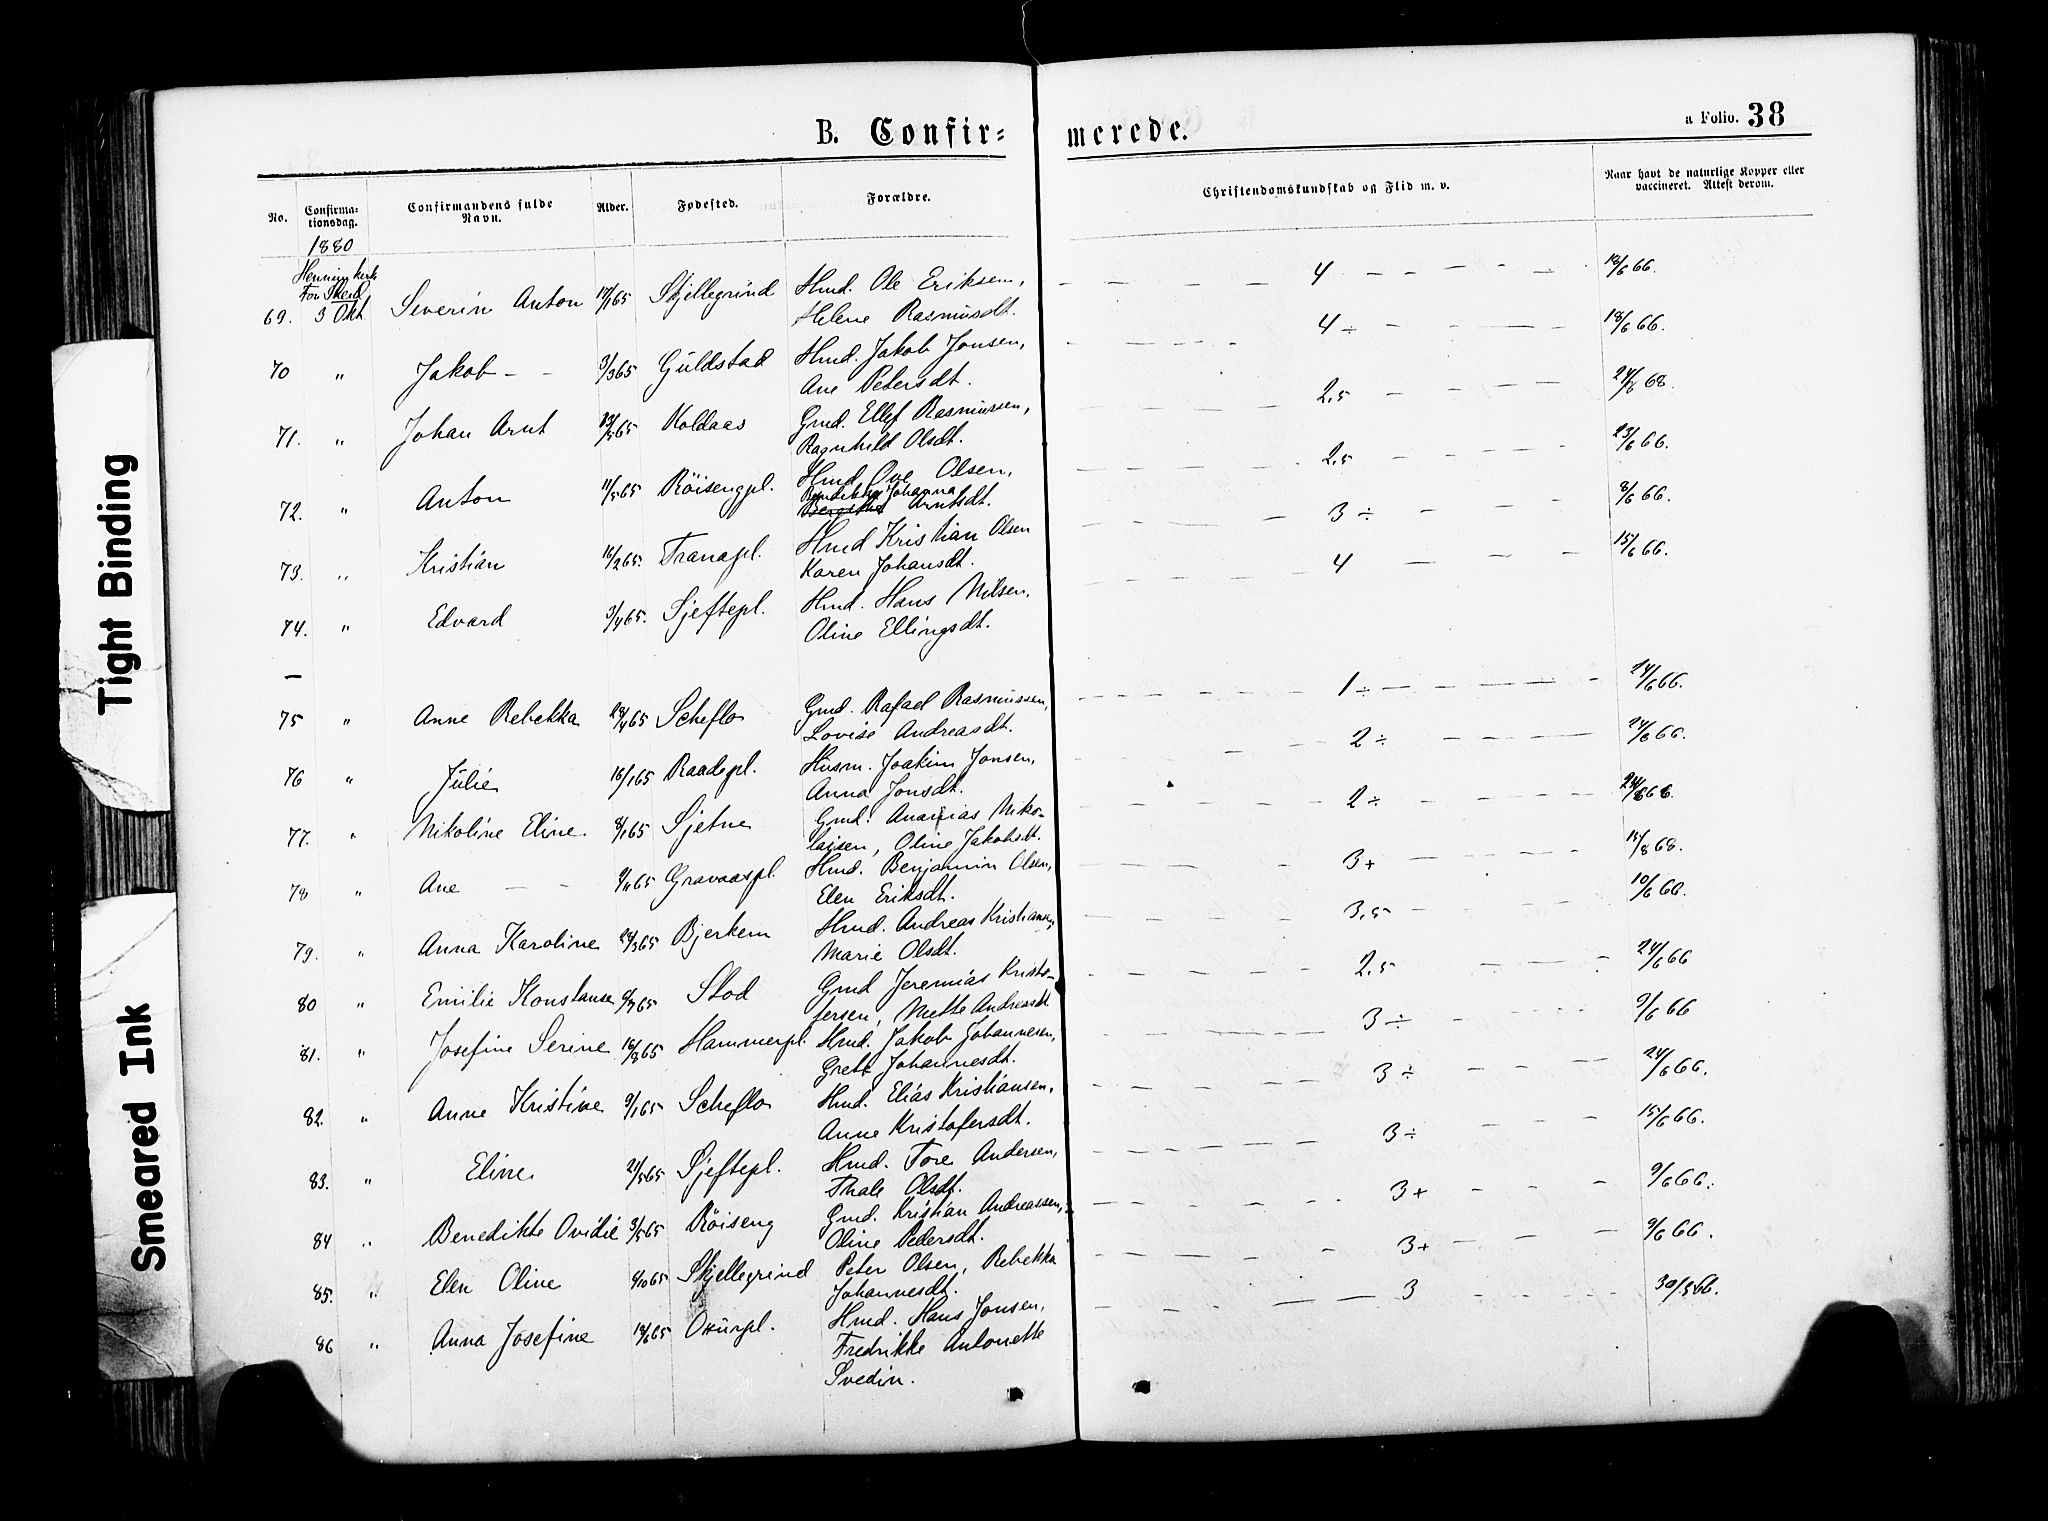 B. Confir=
merede.
a Folio. 38
No.
Confirma-
tionsdag.
Confirmandens fulde
Navn.
Alder.
Fødested.
Forældre.
Christendomskundskab og Flid m. v.
Naar havt de naturlige Kopper eller
vaccineret. Attest derom.
1880
69. 3 Okt. Severin Anton 65 Skjellegrind Hmd. Ole Eriksen, 4 18/6 66.
Helene Rasmusdt.
70 " Jakob 3/3 65 Guldstad Hmd. Jakob Jonsen, 4 ÷ 18/6 66.
Ane Petersdt.
71. " Johan Arnt 65 Koldaas Gmd. Ellef Rasmussen, 2,5 68.
Ragnhild Olsdt.
72. " Anton 11/5 65 Röisengpl. Hmd Ove Olsen, 2,5 23/6 66.
Johanna
Arntsdt.
73. " Kristian 16/2 65. Tranapl. Hmd Kristian Olsen 3 ÷ 8/6 66.
Karen Johansdt.
74. " Edvard 3/4 65. Sjeftepl. Hmd. Hans Nilsen, 4 15/6 66.
Oline Ellingsdt.
—
75 " Anne Rebekka 65 Scheflo Gmd. Rafael Rasmussen, 1 ÷ 14/6 66.
Lovise Andreasdt.
76 " Julie 16/1 65 Raadepl. Husm. Joakim Jonsen, 2 ÷ 24/6 66.
Anna Jonsdt.
77. " Nikoline Eline. 8/1 65 Sjetne Gmd. Ananias Niko-
laisen, Oline Jakobsdt. 2 ÷
78 " Ane 65 Gravaaspl. Hmd. Benjamin Olsen, 3+ 15/8 68.
Elen Eriksdt.
79. " Anna Karoline 24/3 65 Bjerkem Hmd. Andreas Kristiansen, 3,5 10/6 66.
Marie Olsdt.
80 " Emilie Konstanse 65 Stod Gmd Jeremias Kristo- 2,5 24/6 66
fersen, Mette Andreasdt
81. " Josefine Serine 65 Hammerpl. Hmd. Jakob Johannesen, 3 ÷ 9/6 66
Grete Johannesdt.
82. " Anne Kristine 9/1 65 Scheflo Hmd. Elias Kristiansen, 3 ÷ 24/6 66.
Anne Kristofersdt.
83. " Eline 21/5 65 Sjeftepl. Hmd. Tore Andersen, 3 ÷ 15/6 66.
Thale Olsdt.
84 " Benedikte Ovidie 3/5 65 Röiseng Gmd. Kristian Andreassen, 3+ 9/6 66.
Oline Pedersdt.
85. " Elen Oline 65 Skjellegrind Peter Olsen, Rebekka 3+ 9/6 66.
Johannesdt.
86 " Anna Josefine 65 Hmd. Hans Jonsen, 3 30/5 66.
Fredrikke Antonette
Svedin.
Tight Binding
Smeared Ink